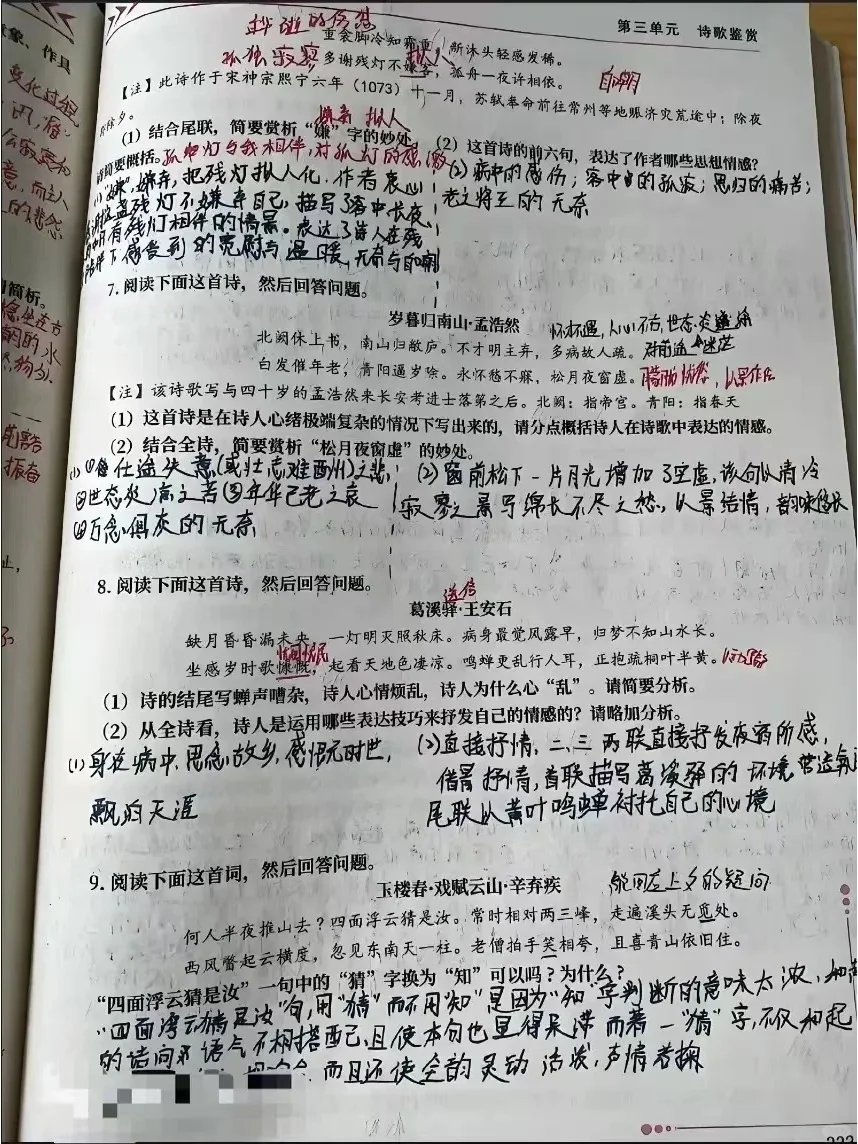 第三单元 诗歌鉴赏
重衾脚冷知霜重，新沐头轻感发稀。
孤独寂寥 多谢残灯不嫌客，孤舟一夜许相依。
拟人
自嘲
【注】此诗作于宋神宗熙宁六年（1073）十一月，苏轼奉命前往常州等地赈济灾荒途中；除夜
嫌弃 拟人
（1）结合尾联，简要赏析“嫌”字的妙处。
（2）这首诗的前六句，表达了作者哪些思想情感？
请简要概括。
(1)“嫌”，嫌弃，把残灯拟人化，作者衷心
残灯不嫌弃自己，描写了客中长夜
有残灯相伴的情景。表达了诗人在残
下感觉到的宽慰与温暖，无奈与自嘲
(2) 病中的感伤；客中的孤寂；思归的痛苦；
老之将至的无奈
7. 阅读下面这首诗，然后回答问题。
岁暮归南山·孟浩然
北阙休上书，南山归敝庐。不才明主弃，多病故人疏。
白发催年老，青阳逼岁除。永怀愁不寐，松月夜窗虚。
【注】该诗歌写与四十岁的孟浩然来长安考进士落第之后。北阙：指帝宫。青阳：指春天
（1）这首诗是在诗人心绪极端复杂的情况下写出来的，请分点概括诗人在诗歌中表达的情感。
（2）结合全诗，简要赏析“松月夜窗虚”的妙处。
(1) ①仕途失意(或壮志难酬)之悲；
②世态炎凉之苦 ③年华已老之哀
④万念俱灰的无奈
(2) 窗前松下一片月光增加了空虚，该句以清冷
寂寥之景写绵长不尽之愁，以景结情，韵味悠长
8. 阅读下面这首诗，然后回答问题。
葛溪驿·王安石
缺月昏昏漏未央，一灯明灭照秋床。病身最觉风露早，归梦不知山水长。
坐感岁时歌慷慨，起看天地色凄凉。鸣蝉更乱行人耳，正抱疏桐叶半黄。
（1）诗的结尾写蝉声嘈杂，诗人心情烦乱，诗人为什么心“乱”。请简要分析。
（2）从全诗看，诗人是运用哪些表达技巧来抒发自己的情感的？请略加分析。
(1) 身在病中，思念故乡，感慨时世，
飘泊天涯
(2) 直接抒情，二、三两联直接抒发夜宿所感，
借景抒情，首联描写葛溪驿的环境，营造氛
尾联以黄叶鸣蝉衬托自己的心境
9. 阅读下面这首词，然后回答问题。
玉楼春·戏赋云山·辛弃疾
何人半夜推山去？四面浮云猜是汝。常时相对两三峰，走遍溪头无觅处。
西风瞥起云横度，忽见东南天一柱。老僧拍手笑相夸，且喜青山依旧住。
“四面浮云猜是汝”一句中的“猜”字换为“知”可以吗？为什么？
“四面浮云猜是汝”句，用“猜”而不用“知”是因为“知”字判断的意味太浓，和
的诘问语气不相搭配，且使本句也显得呆滞 而着一“猜”字，不仅和起
而且还使全韵灵动活泼，声情若掬